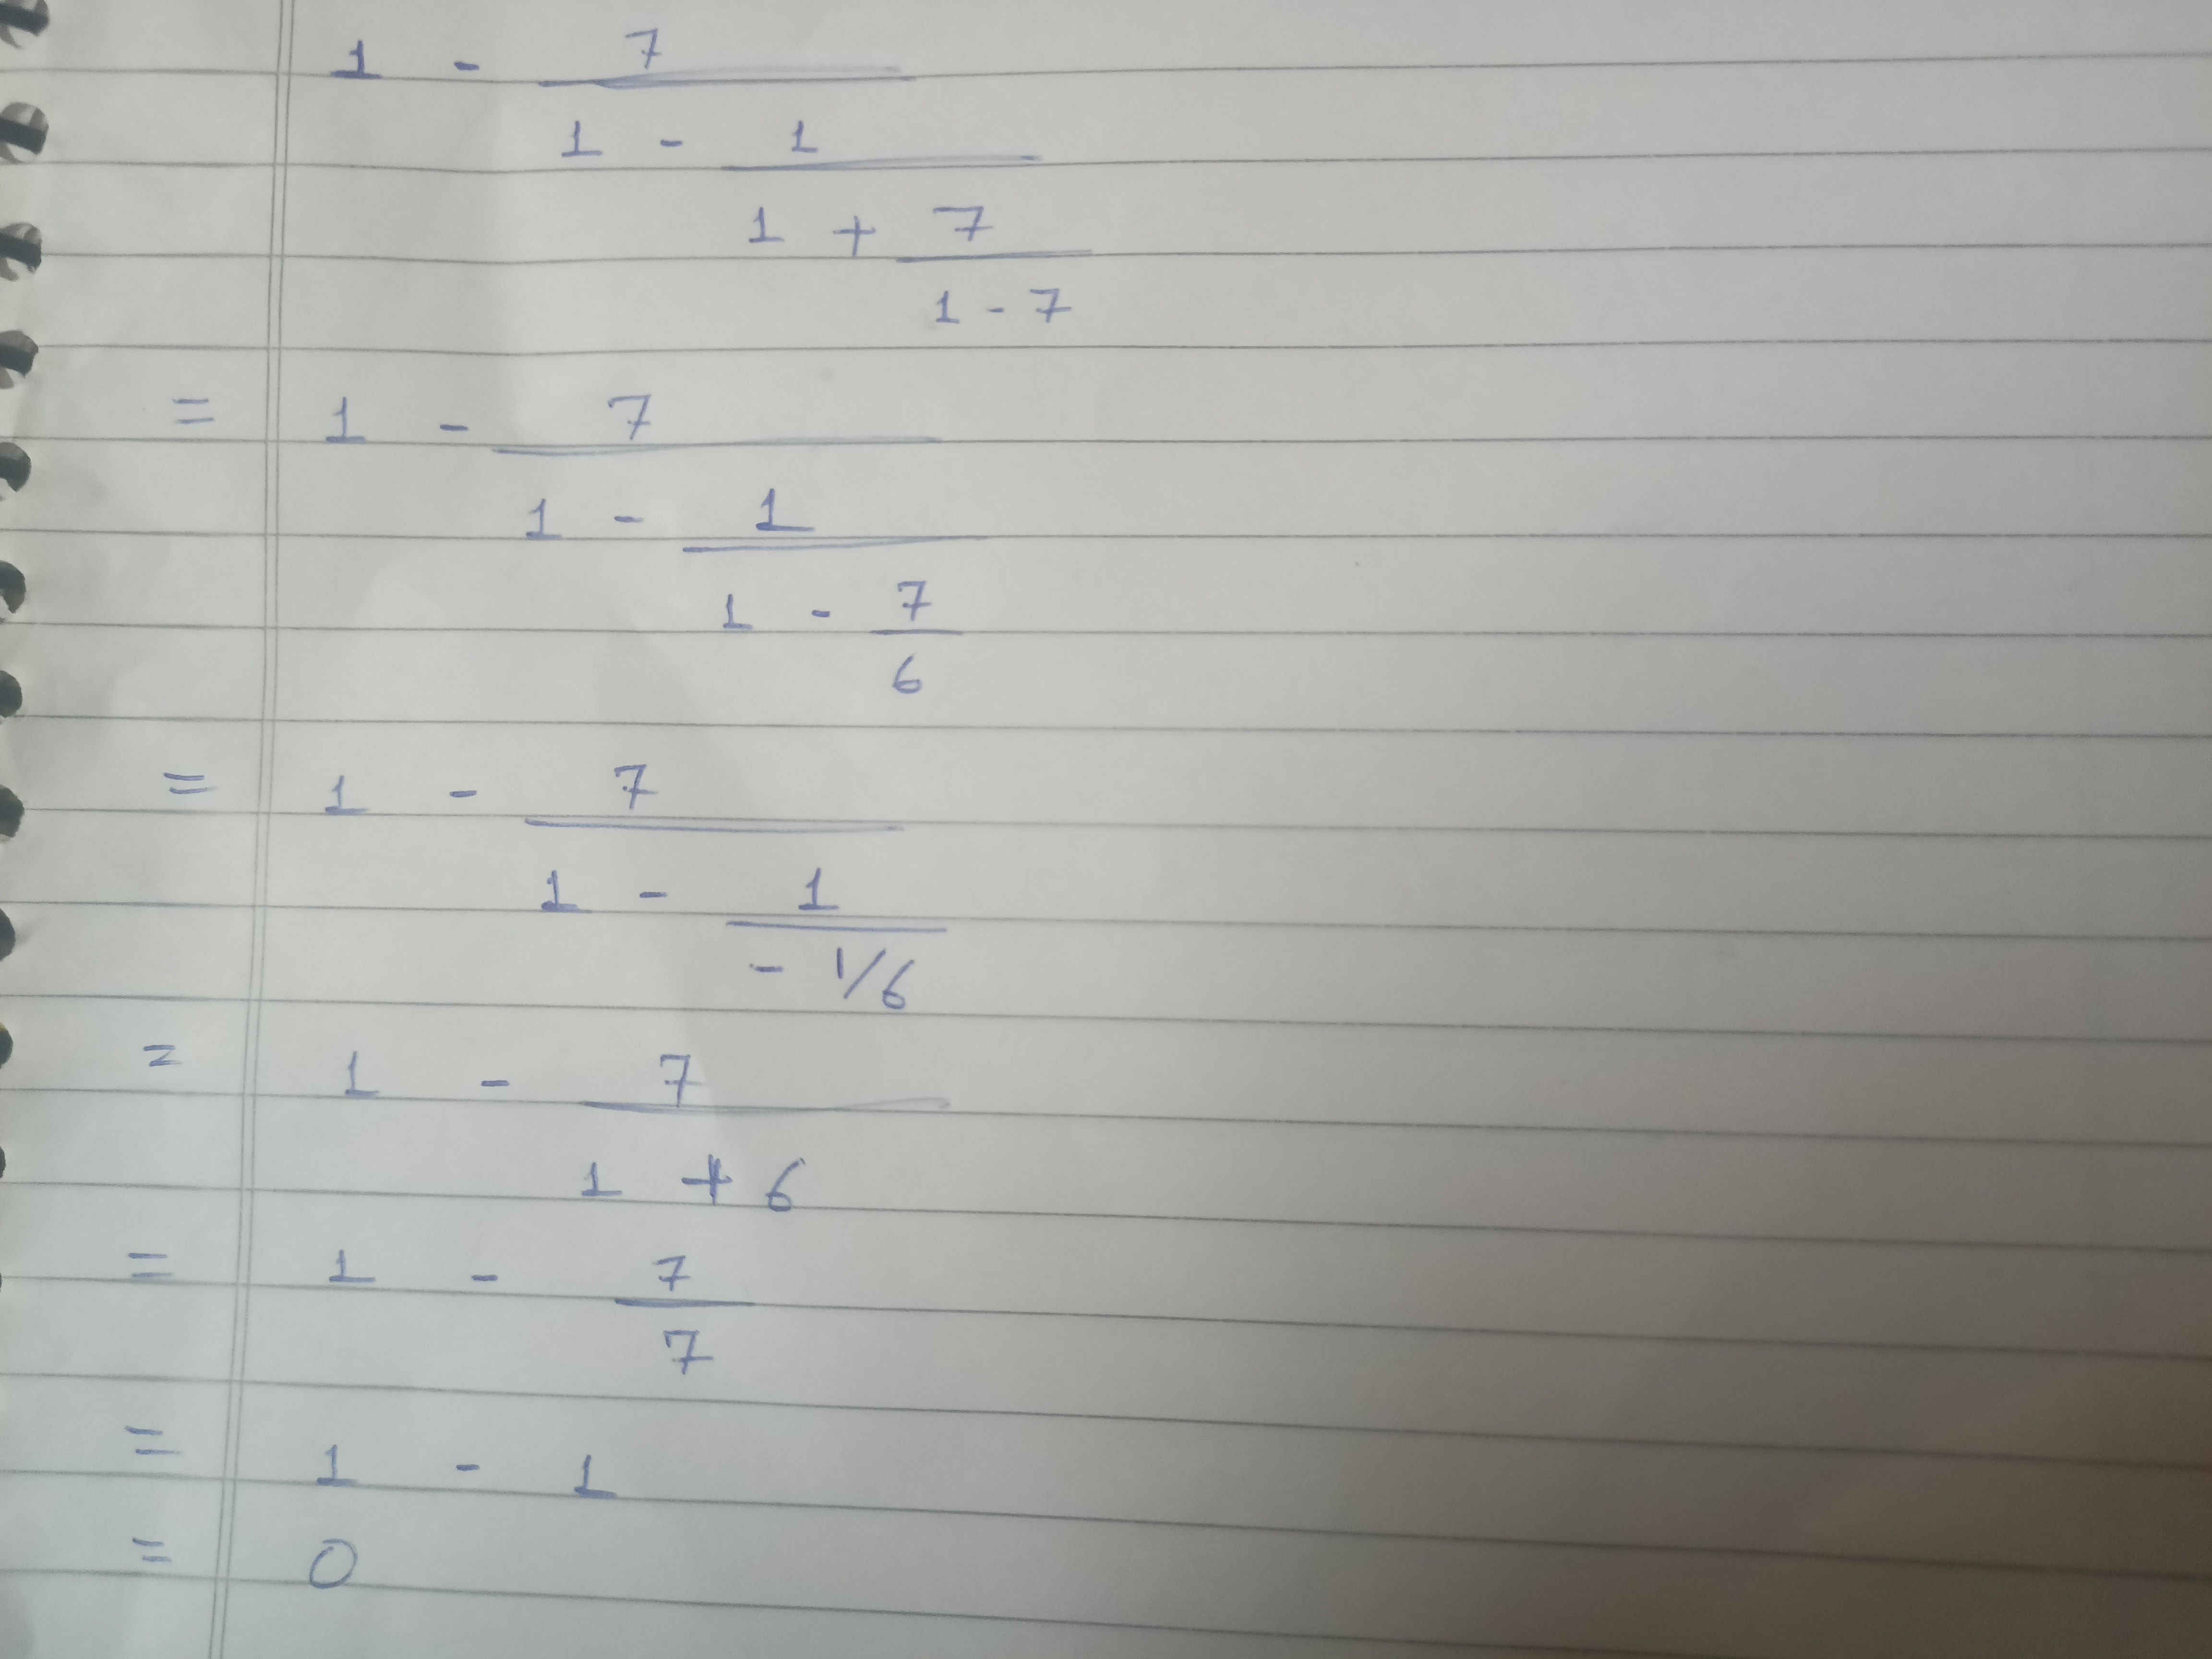 1 - 7
1 - 1
1 + 7
1 - 7
= 1 - 7
1 - 1
1 - 7
6
= 1 - 7
1 - 1
- 1/6
= 1 - 7
1 + 6
= 1 - 7
7
= 1 - 1
= 0